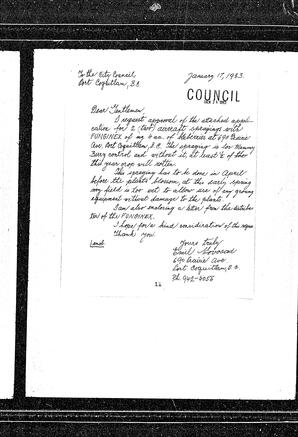 To the City Council
Port Coquitlam, B.C.
January 17, 1983.
COUNCIL
Dear Gentlemen,
I request approval of the attached appli-
cation for 2 (two) aircraft sprayings with
FUNGINEX of my 4 ac. of blueberries at 690 Prairie
Ave. Port Coquitlam, B.C. The spraying is for Mummy
Berry control and without it, at least ½ of
this years crop will
The spraying has to be done in April
before the plants blossom, at this early spring
my field is too wet to allow use of any ground
equipment without damage to the plants.
I am also enclosing a letter from the distribu-
tor of the FUNGINEX.
I hope for a kind consideration of the
Thank you.
Yours truly
690 Prairie Ave.
Port Coquitlam, B.C.
Ph. 942-6056